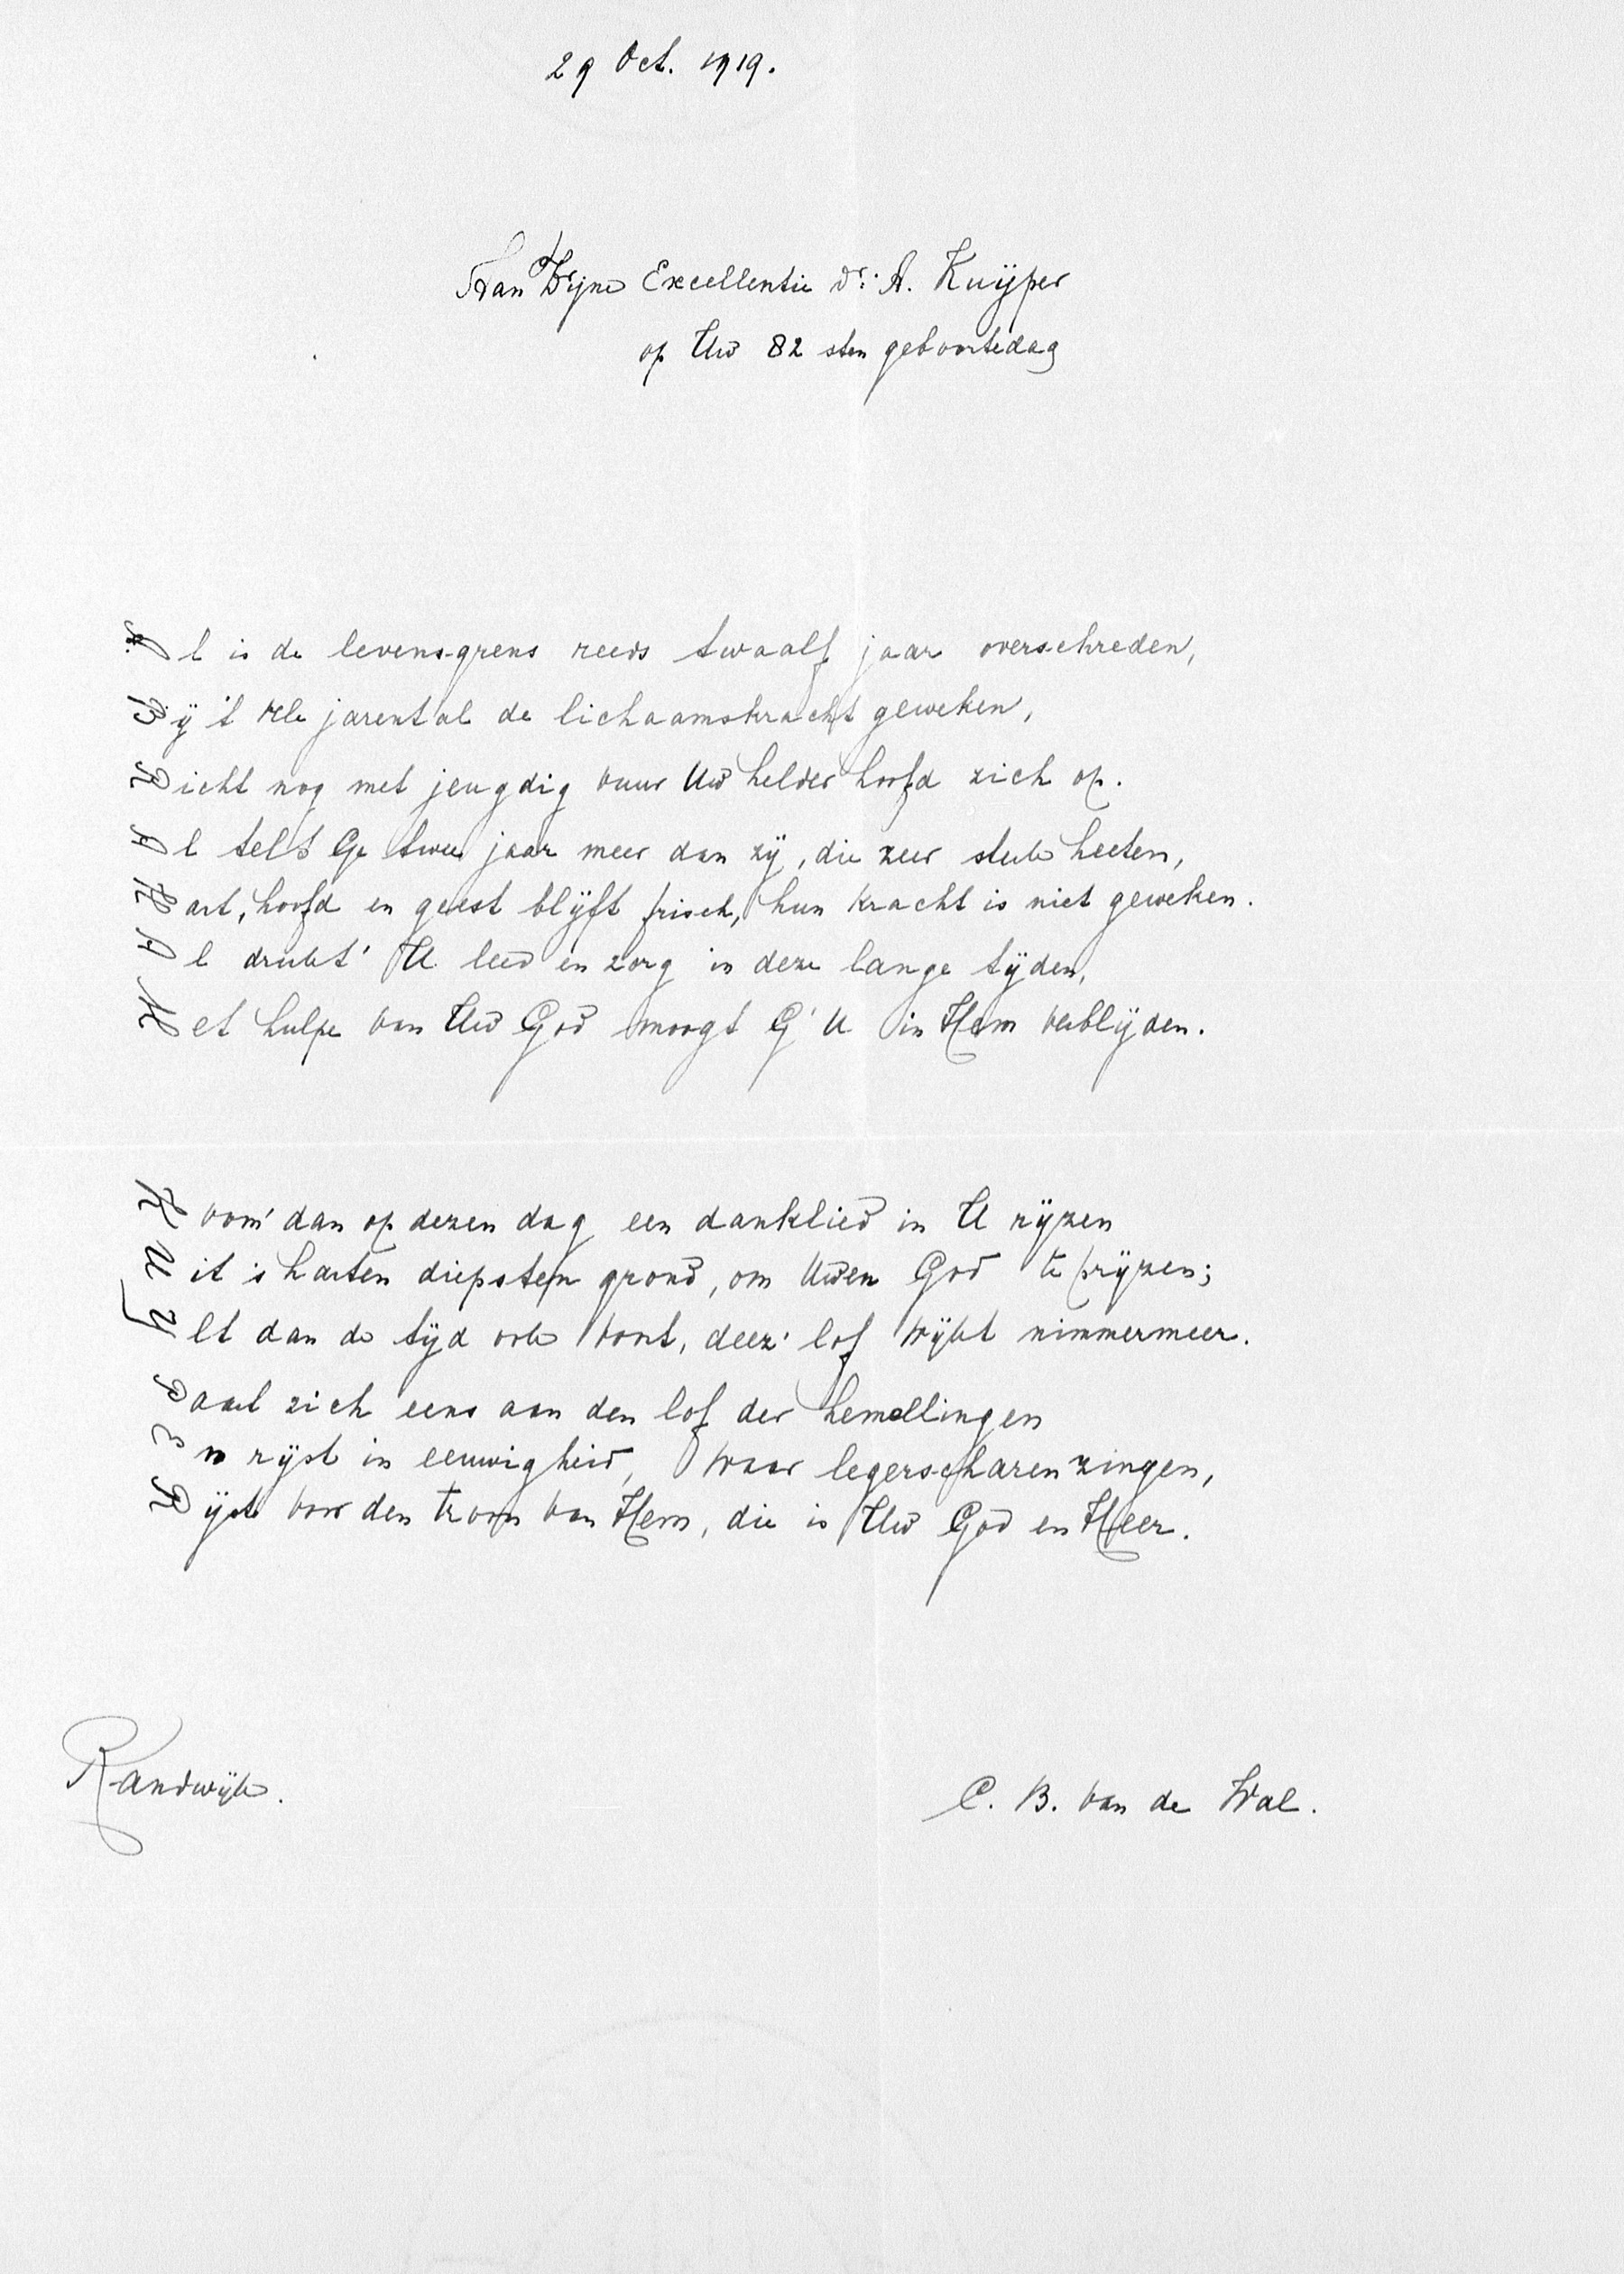 29 Oct. 1919.
Aan Zijne Excellentie Dr. A. Kuÿper
op Uw 82 sten geboortedag
Al is de levensgrens reeds twaalf jaar overschreden,
Bÿ 't jarental de lichaamskracht geweken,
Richt nog met jeugdig vuur Uw helder hoofd zich op.
Al telt Ge twee jaar meer dan zÿ, die zeer sterk heeten,
Hart, hoofd en geest blÿft frisch, hun kracht is niet geweken.
Al drukt' U leed en zorg in deze lange tÿden,
Met hulpe van Uw God moogt G' U in Hem verblÿden.
Koom' dan op dezen dag een danklied in U rÿzen
Uit 's harten diepsten grond, om Uwen God te prÿzen;
Ylt dan de tÿd ook voort, deez' lof wÿkt nimmermeer.
Paart zich eens aan den lof der hemellingen
En rÿst in eeuwigheid, waar legerscharen zingen,
Rÿst voor den troon van Hem, die is Uw God en Heer.
Randwÿk.
C. B. van de Wal.